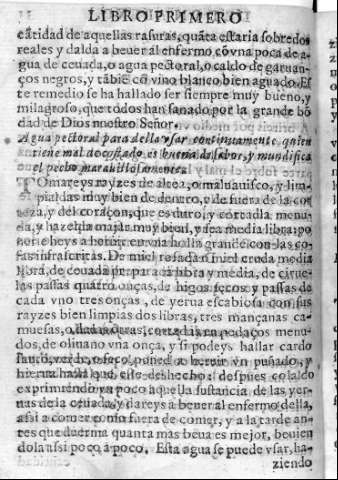 LIBRO PRIMERO
cãtidad de aquellas rasuras, quãta estaria sobre dos
reales y dalda a beuer al enfermo cõ vna poca de a-
gua de ceuada, o agua pectoral, o caldo de garuan-
ços negros, y tãbiẽ cõ vino blanco bien aguado. Es
te remedio se ha hallado ser siempre muy bueno, y
milagroso, que todos han sanado por la grande bõ
dad de Dios nuestro Señor.
Agua pectoral para della vsar continuamente quien
tiene mal de costado es buena de sabor, y mundifica
el pecho marauillosamente.
TOmareys rayzes de alcea, o maluauisco, y lim-
pialdas muy bien de dentro, y de fuera de la cor
teza, y del coraçon, que es duro, y cortadla menu-
da, y hazelda majar muy bien, y sea media libra: po
neys a heruir en vna holla grande con las co-
sas infrascritas. De miel rosada o miel cruda media
libra, de ceuada libra y media, de cirue-
las passas quatro onças, de higos secos y passas de
cada vno tres onças, de yerua escabiosa con sus
rayzes bien limpias dos libras, tres mançanas ca-
muesas, cortadas en pedaços menu-
dos, de oliuano vna onça, y si podeys hallar cardo
santo, verde, o seco, poned a heruir vn puñado, y
hierua hasta que este deshecho: despues colaldo
exprimiendo vn poco aquella sustancia de las yer-
uas de la ceuada, y dareys a beuer al enfermo della,
assi a comer como fuera de comer, y a la tarde an-
tes que duerma quanta mas beua es mejor, beuien
dola assi poco a poco. Esta agua se puede vsar, ha-
ziendo